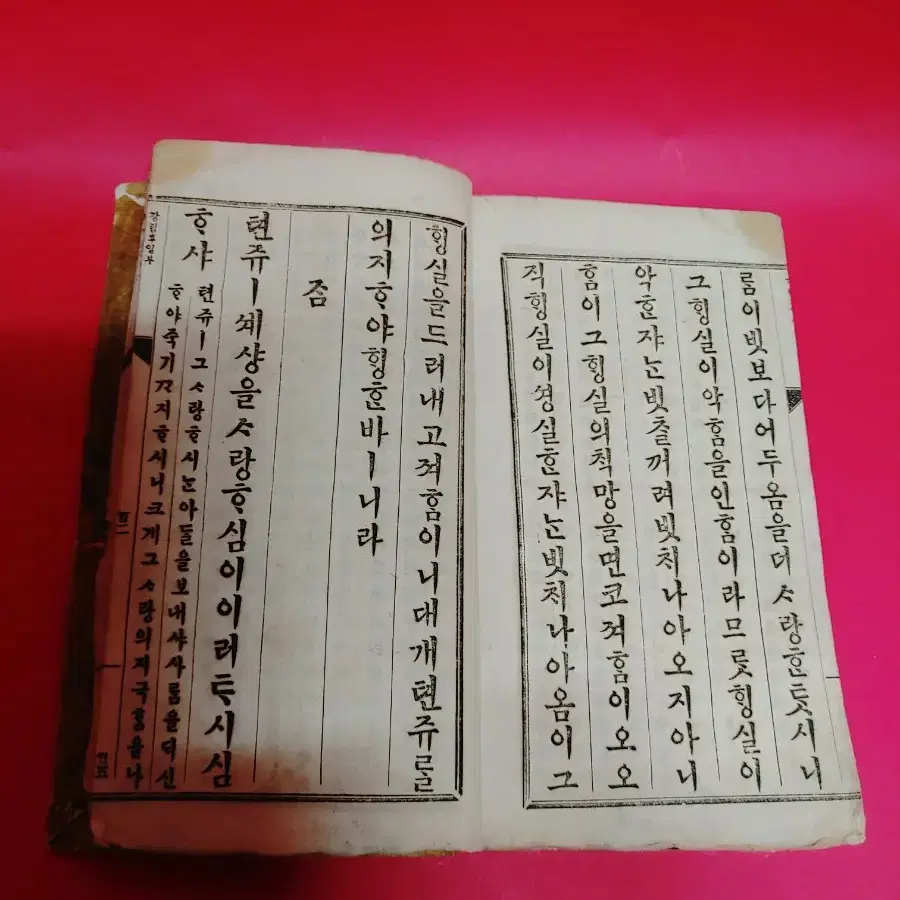 ᄅᆞᆷ이빗보다어두옴을더ᄉᆞ랑ᄒᆞᆫ듯시니
그ᄒᆡᆼ실이악ᄒᆞᆷ을인ᄒᆞᆷ이라므ᄅᆞᆺᄒᆡᆼ실이
악ᄒᆞᆫ쟈ᄂᆞᆫ빗츨ᄭᅥ려빗체나아오지아니
ᄒᆞᆷ이그ᄒᆡᆼ실의칙망을면코져ᄒᆞᆷ이오오
직ᄒᆡᆼ실이셩실ᄒᆞᆫ쟈ᄂᆞᆫ빗체나아옴이그
ᄒᆡᆼ실을드러내고져ᄒᆞᆷ이니대개텬쥬ᄅᆞᆯ
의지ᄒᆞ야ᄒᆡᆼᄒᆞᆫ바ㅣ니라
좀
텬쥬ㅣ셰샹을ᄉᆞ랑ᄒᆞ심이이러ᄐᆞᆺ시심
ᄒᆞ샤
텬쥬ㅣ그ᄉᆞ랑ᄒᆞ시ᄂᆞᆫ아ᄃᆞᆯ을보내샤사ᄅᆞᆷ을ᄃᆡ신
ᄒᆞ야죽기ᄭᆞ지ᄒᆞ시니크게그ᄉᆞ랑의지극ᄒᆞᆷ을나